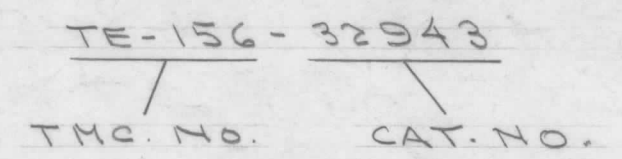 TE-156-32943
TMC. NO. CAT. NO.